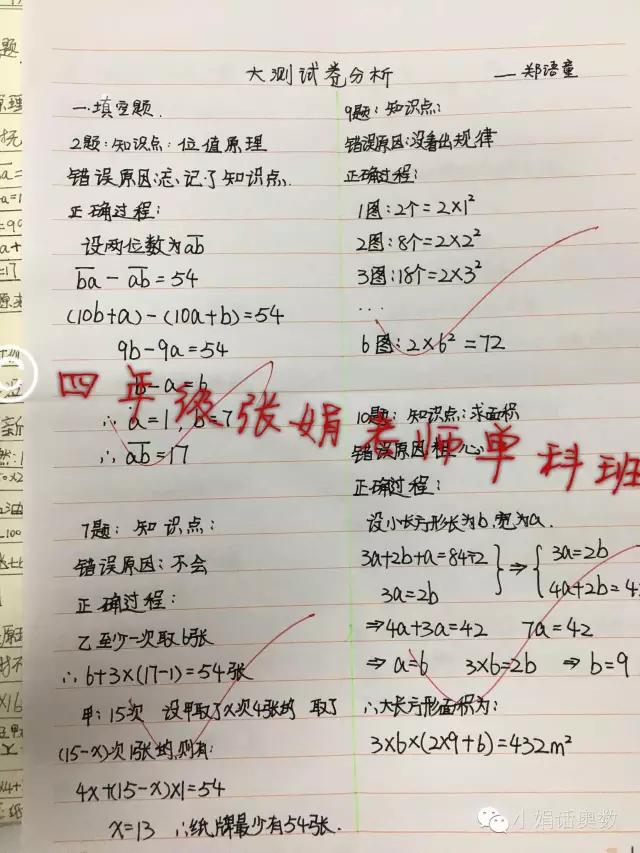 大测试卷分析 —郑语童
一.填空题.
2题:知识点:位值原理
错误原因:忘记了知识点.
正确过程:
设两位数为ab
ba-ab=54
(10b+a)-(10a+b)=54
9b-9a=54
b-a=6
∴a=1,b=7
∴ab=17
7题:知识点:
错误原因:不会
正确过程:
乙至少一次取6张
∴6+3×(17-1)=54张
甲:15次 设甲取了x次4张的 取了
(15-x)次1张的,则有:
4x+(15-x)×1=54
x=13 ∴纸牌最少有54张.
9题:知识点:
错误原因:没看出规律
正确过程:
1图:2个=2×1²
2图:8个=2×2²
3图:18个=2×3²
...
6图:2×6²=72
10题:知识点:求面积
错误原因:粗心
正确过程:
设小长方形长为b,宽为a.
3a+2b+a=84÷2
3a=2b
⇒ 3a=2b
4a+2b=4
⇒4a+3a=42 7a=42
⇒a=6 3×6=2b ⇒b=9
∴大长方形面积为:
3×6×(2×9+6)=432m²
四年级张娟老师单科班
小娟话奥数